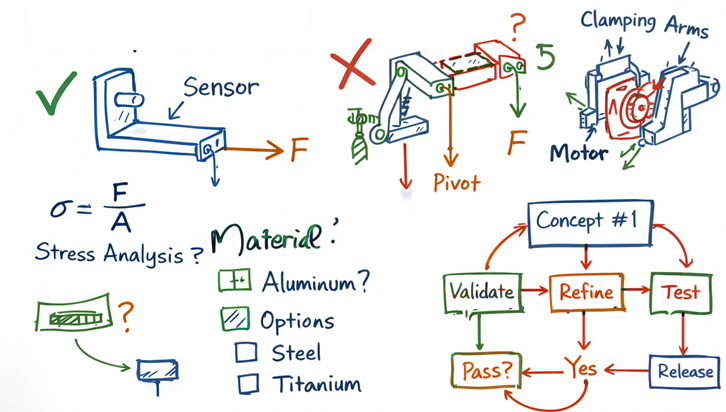 Sensor
F
σ = F
A
Stress Analysis ?
?
Material :
Aluminum?
Options
Steel
Titanium
?
5
F
Pivot
Clamping Arms
Motor
Concept #1
Validate
Refine
Test
Pass?
Yes
Release